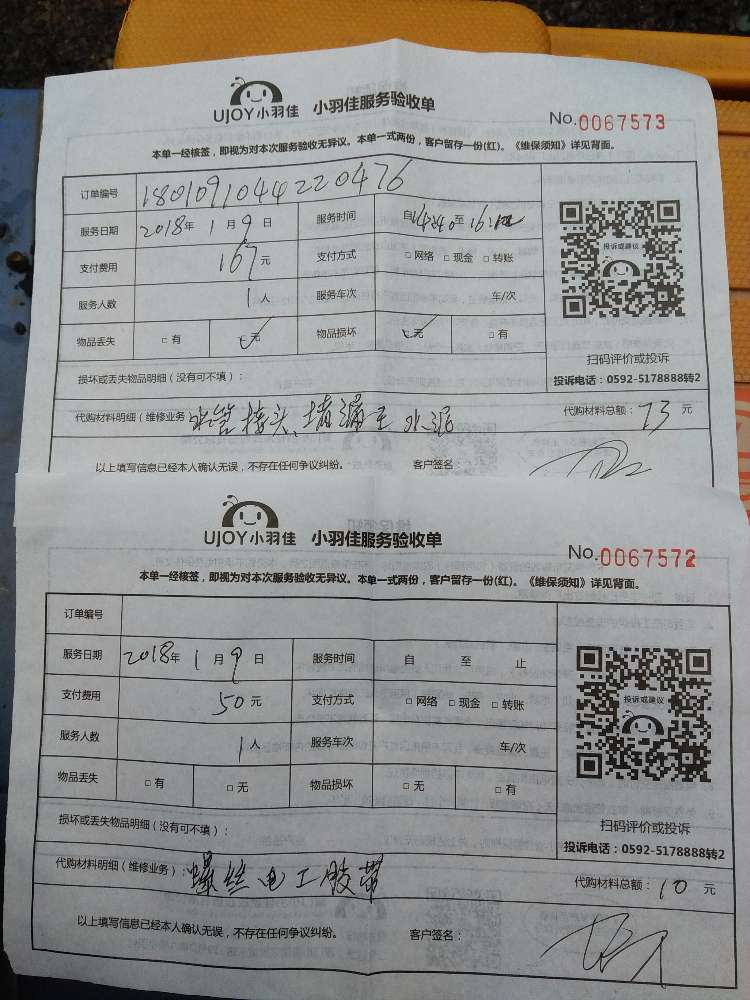 UJOY小羽佳 小羽佳服务验收单
No.0067573
本单一经核签，即视为对本次服务验收无异议。本单一式两份，客户留存一份(红)。《维保须知》详见背面。
订单编号 1801091044220476
服务日期 2018年1月9日 服务时间 自14:40至16:12止
支付费用 167元 支付方式 □网络 □现金 □转账
服务人数 1人 服务车次 车/次
物品丢失 □有 □无 物品损坏 □无 □有
投诉或建议
扫码评价或投诉
投诉电话：0592-5178888转2
损坏或丢失物品明细（没有可不填）：
代购材料明细（维修业务 水管接头、堵漏王 水泥 代购材料总额：73元
以上填写信息已经本人确认无误，不存在任何争议纠纷。 客户签名：
UJOY小羽佳 小羽佳服务验收单
No.0067572
本单一经核签，即视为对本次服务验收无异议。本单一式两份，客户留存一份(红)。《维保须知》详见背面。
订单编号
服务日期 2018年1月9日 服务时间 自 至 止
支付费用 50元 支付方式 □网络 □现金 □转账
服务人数 1人 服务车次 车/次
物品丢失 □有 □无 物品损坏 □无 □有
投诉或建议
扫码评价或投诉
投诉电话：0592-5178888转2
损坏或丢失物品明细（没有可不填）：
代购材料明细（维修业务）：螺丝电工胶带 代购材料总额：10元
以上填写信息已经本人确认无误，不存在任何争议纠纷。 客户签名：